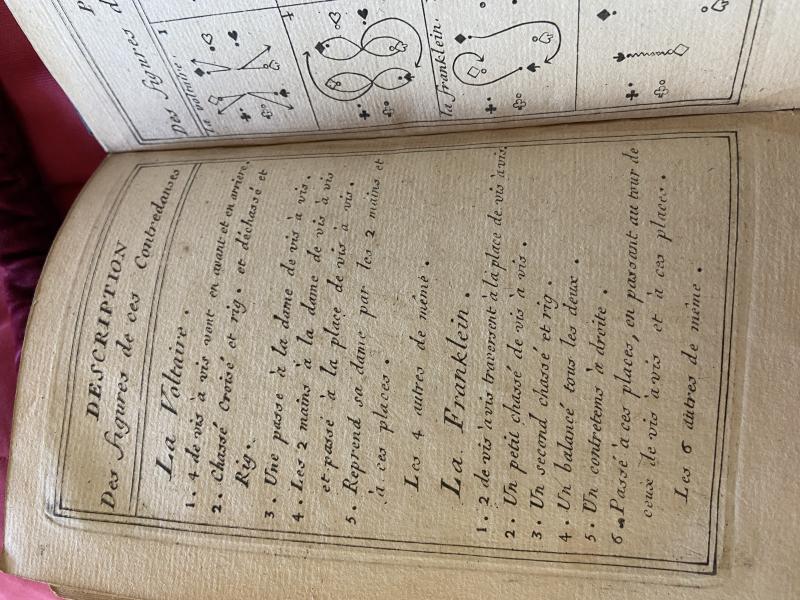 DESCRIPTION
Des figures de ces Contredanses
La Voltaire .
1 . 4 de vis à vis vont en avant et en arriere.
2 . Chassé Croisé et rig . et déchassé et
Rig .
3 . Une passe à la dame de vis à vis .
4 . Les 2 mains à la dame de vis à vis
et passe à la place de vis à vis .
5 . Reprend sa dame par les 2 mains et
à ces places .
Les 4 autres de même .
La Franklein .
1 . 2 de vis à vis traversent à la place de vis à vis.
2 . Un petit chassé de vis à vis .
3 . Un second chassé et rig .
4 . Un balancé tous les deux .
5 . Un contretems à droite .
6 . Passé à ces places, en passant au tour de
ceux de vis à vis et à ces places .
Les 6 autres de même .
Des figures
La Voltaire
1
la franklein